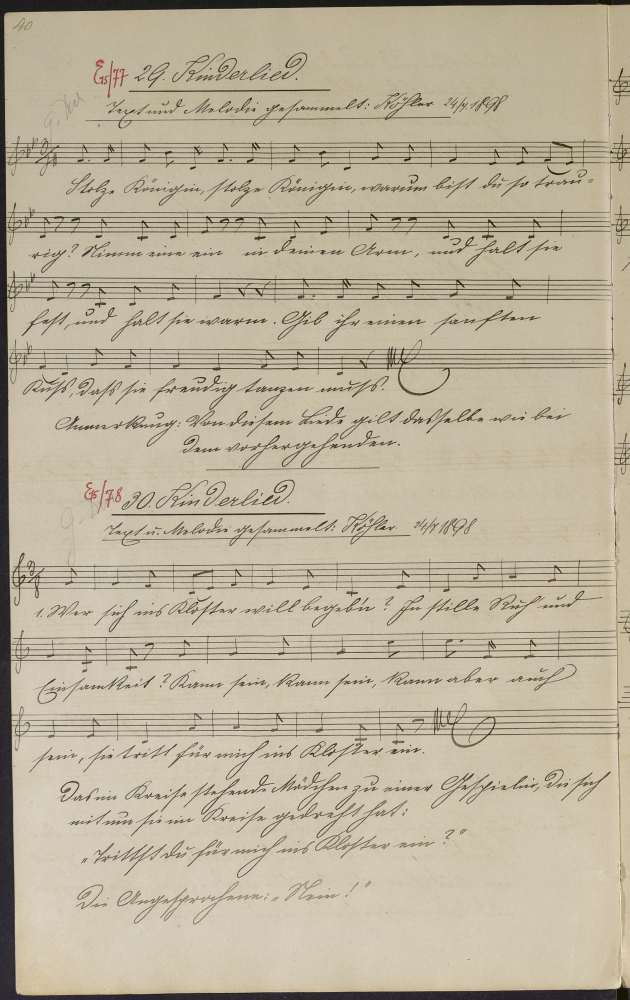 40
E15/77 29. Kinderlied.
Text und Melodie gesammelt: Köhler 24/4 1898
Stolze Königin, stolze Königin, warum bist du so trau-
rig? Nimm eine ein in deinen Arm, und halt sie
fest, und halt sie warm. Gib ihr einen sanften
Kuss, dass sie freudig tanzen muss.
Anmerkung: Von diesem Liede gilt dasselbe wie bei
dem vorhergehenden.
E15/78 30. Kinderlied.
Text u. Melodie gesammelt: Köhler 24/4 1898
1. Wer sich ins Kloster will begeb'n? In stille Ruh' und
Einsamkeit? Kann sein, kann sein, kann aber auch
sein, sie tritt für mich ins Kloster ein.
Das im Kreise stehende Mädchen zu einer Gespielin, die sich
mit um sie im Kreise gedreht hat:
„Trittst du für mich ins Kloster ein?"
Die Angesprochene: „Nein!"